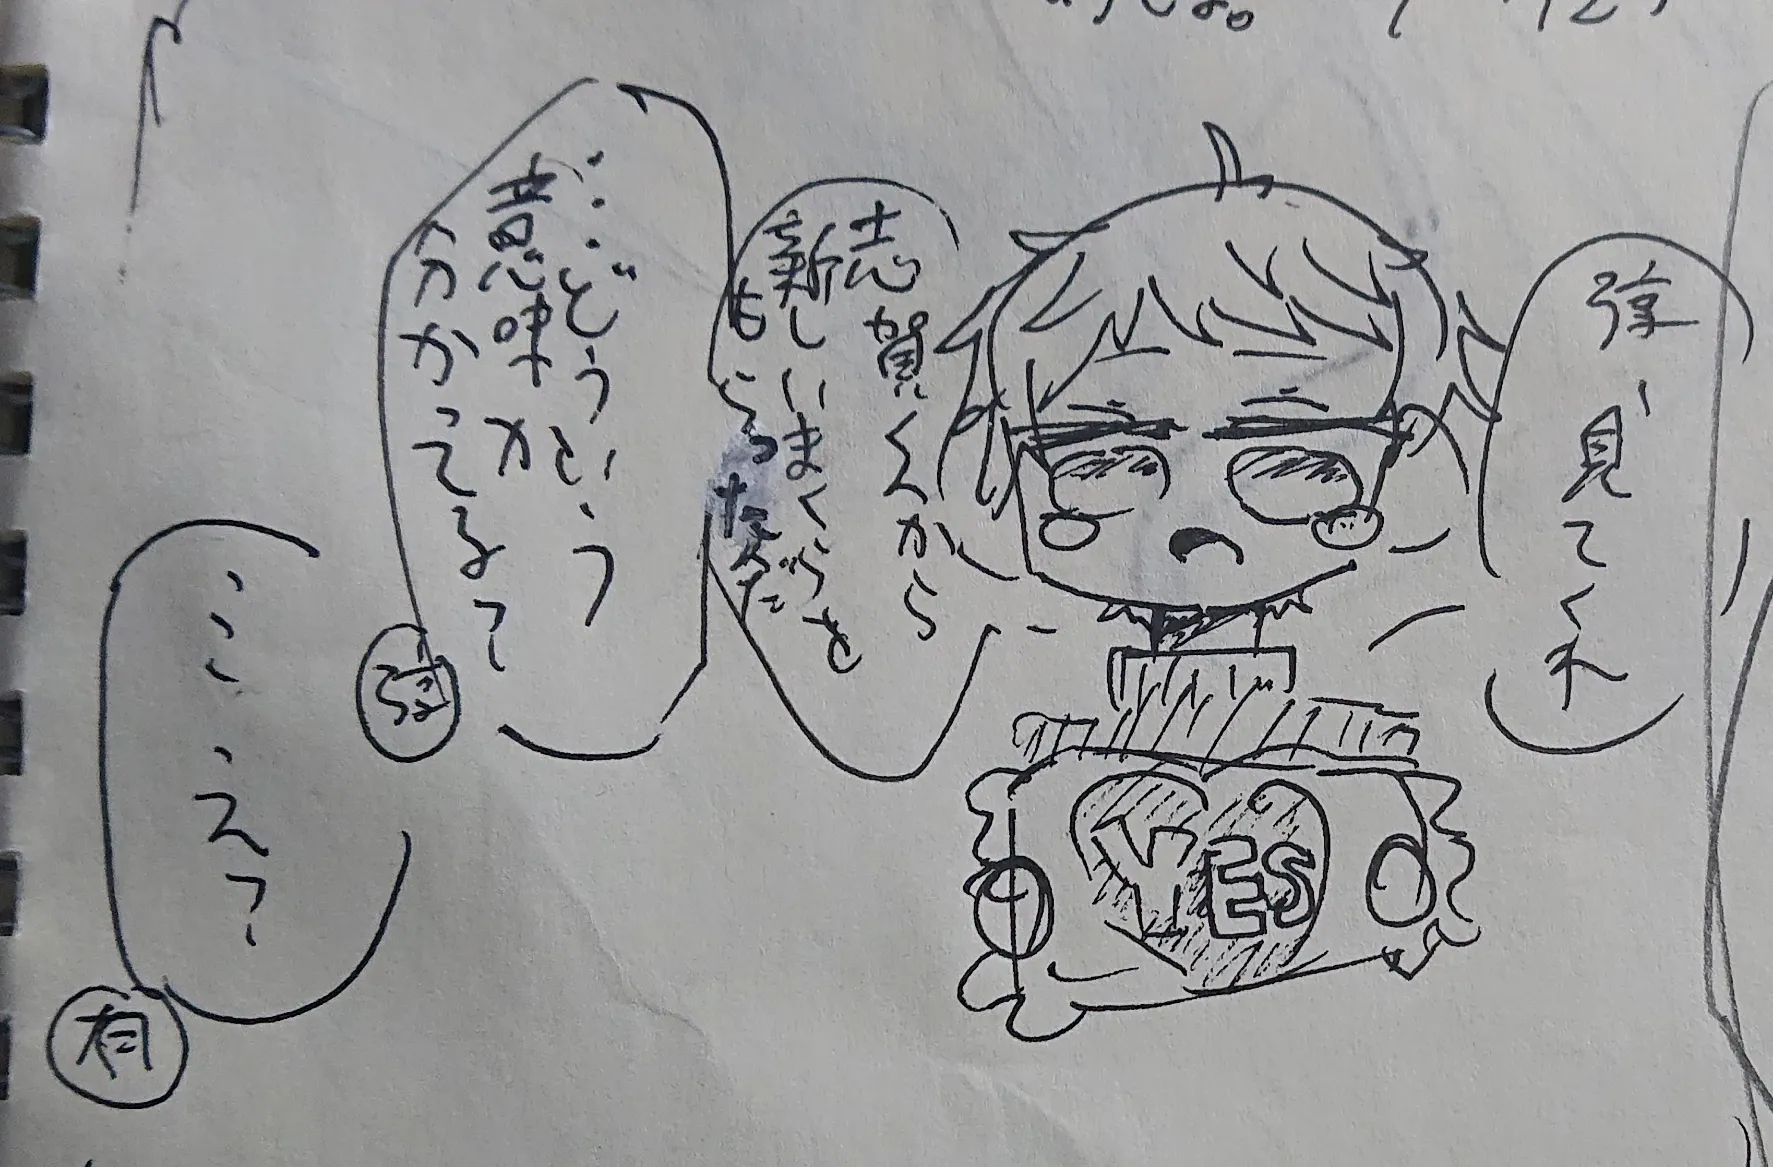 弦、見てくれ
志賀くんから
新しいまくらを
もらったんだ
…どういう
意味か
分かってるよ
弦
…え？
有
YES